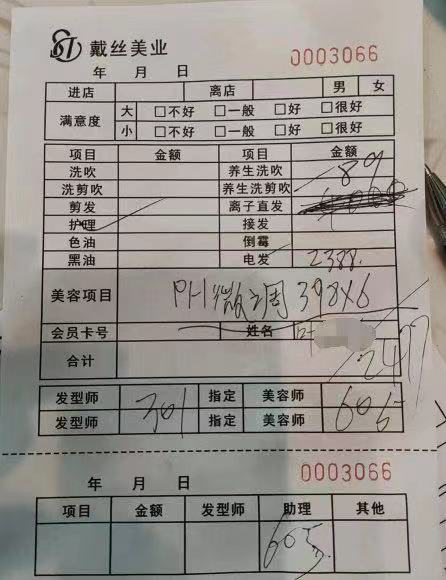 戴丝美业
0003066
年 月 日
进店 离店 男 女
满意度 大 □不好 □一般 □好 □很好
小 □不好 □一般 □好 □很好
项目 金额 项目 金额
洗吹 养生洗吹 89
洗剪吹 养生洗剪吹
剪发 离子直发
护理 接发
色油 倒霉
黑油 电发 2388.
美容项目 PH微调 398X6
会员卡号 姓名 叶
合计 2477
发型师 301 指定 美容师 605
发型师 指定 美容师
0003066
年 月 日
项目 金额 发型师 助理 其他
605